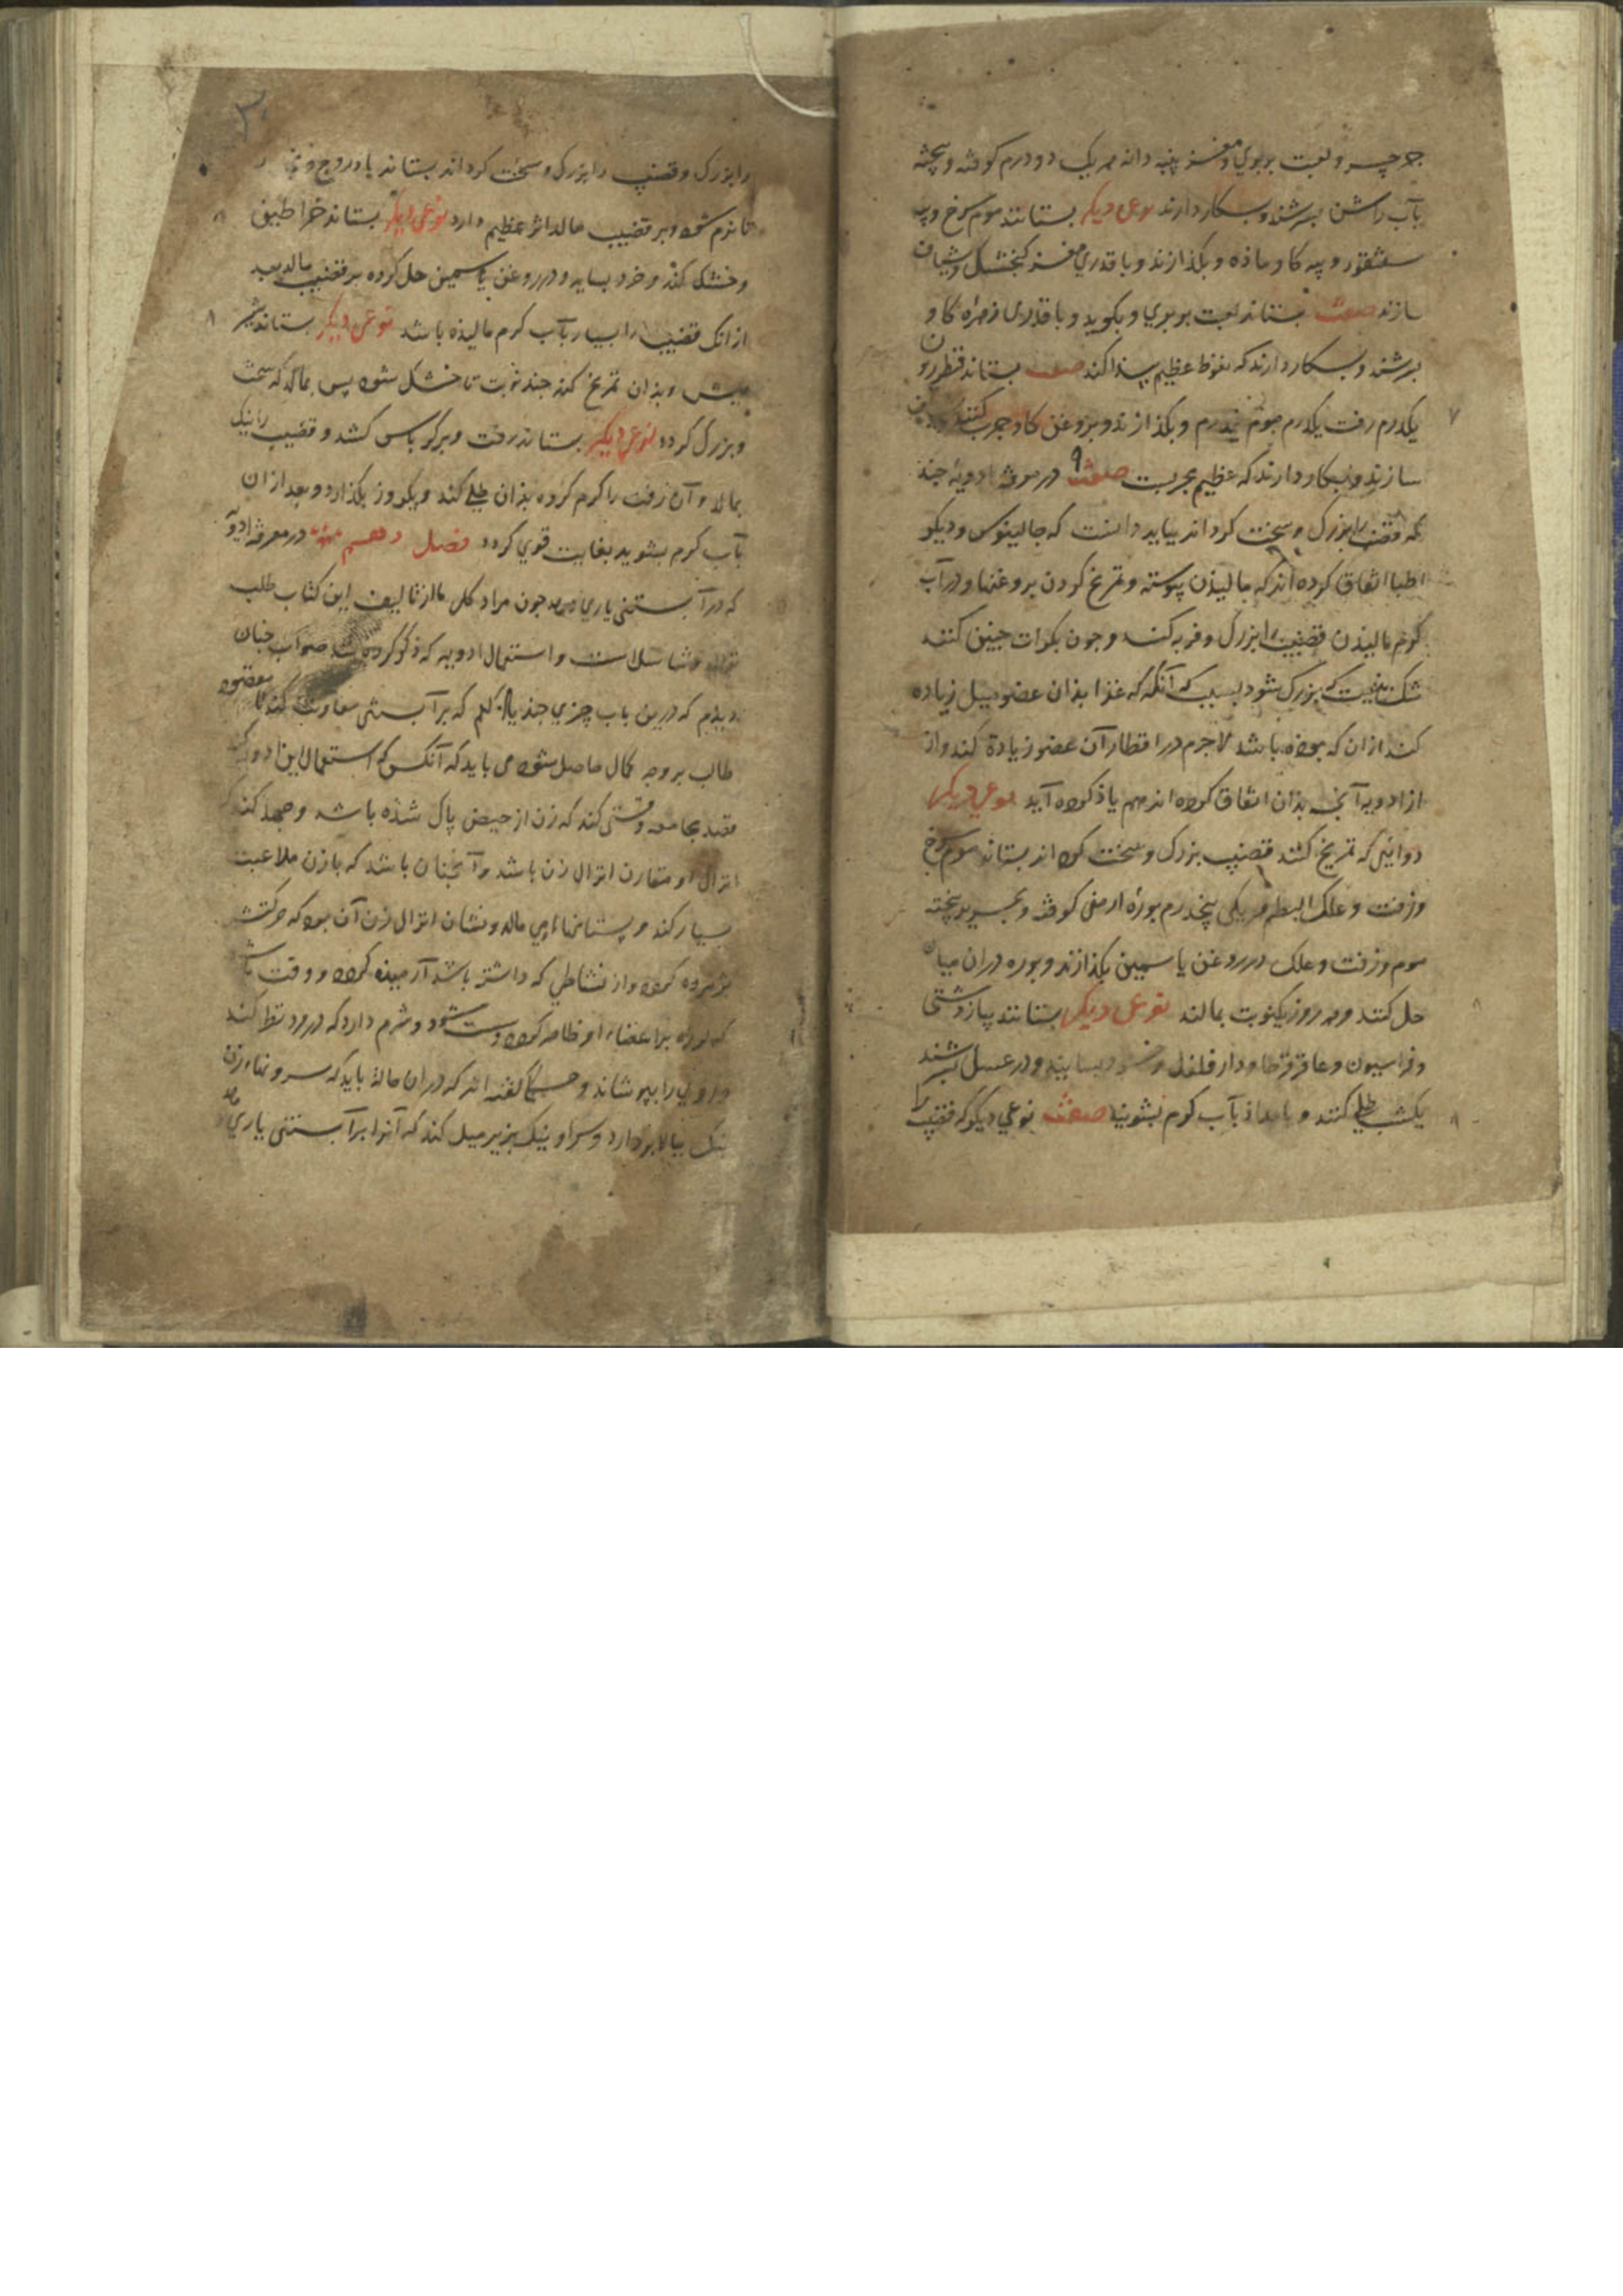 جرجیر و لعبت بربری و مغز پنبه دانه هر یک دو درم کوفته و بیخته
بآب راسن بسرشند و بکار دارند نوعی دیکر بستانند موم سرخ و پیه
سقنقور و پیه کاو ماده و بکدازند و با قدری مغز کنجشک شیاف
سازند صفت بستاند لعبت بربری و بکوبد و با قدری زهرهٔ کاو
بسرشند و بکار دارند که نعوظ عظیم پیدا کند صفت بستاند
یکدرم زفت یکدرم موم نیم درم و بکدازند و بروغن کاو چرب کنند
سازند و بکار دارند که عظیم مجربست صفت در معرفة ادویهٔ چند
که قضیب را بزرک و سخت کرداند بباید دانست که جالینوس و دیکر
اطبا اتفاق کرده اند که مالیذن پیوسته و تمریخ کردن بروغنها و در آب
کرم مالیذن قضیب را بزرک و فربه کند و چون بکرات چنین کنند
شک نیست که بزرک شود بسبب آنکه غذا بذان عضو میل زیاده
کند ازان که بوده باشد لاجرم در اقطار آن عضو زیادة کند و از
از ادویه آنچه بذان اتفاق کرده اند هم یاد کرده آید نوعی دیکر
دوائی که تمریخ کنند قضیب بزرک و سخت کرداند بستاند موم سرخ
و زفت و علک البطم هر یکی پنجدرم بورهٔ ارمنی کوفته و بحریر بیخته
موم و زفت و علک در روغن یاسمین بکدازند و بوره دران میان
حل کنند و هر روز یکنوبت بمالند نوعی دیکر بستانند پیاز دشتی
و فراسیون و عاقرقرحا و دار فلفل و خرد بسایند و در عسل بسرشند
یکشب طلی کنند و بامداد بآب کرم بشویند صفت نوعی دیکر که قضیب را
را بزرک و قضیب را بزرک و سخت کرداند بستاند بادروج و
تا نرم شود و بر قضیب مالد اثر عظیم دارد نوعی دیکر بستاند خراطین
و خشک کند و خرد بساید و در روغن یاسمین حل کرده بر قضیب مالد بعد
از انک قضیب را بسیار بآب کرم مالیذه باشد نوعی دیکر بستاند شیر
میش و بذان تمریخ کند چند نوبت تا خشک شود پس بمالد که سخت
و بزرک کردد نوعی دیکر بستاند زفت و بر کرباس کشد و قضیب را نیک
بمالد و آن زفت را کرم کرده بذان طلی کند و یکروز بکذارد و بعد ازان
بآب کرم بشوید بغایت قوی کردد فصل دهم در معرفة ادویه
که در آبستنی یاری دهد چون مراد کلی ما از تالیف این کتاب طلب
توالد و تناسلست و استعمال ادویه که ذکر کرده شد صواب چنان
دیدم که درین باب چیزی چند یاد کنم که بر آبستنی معاونت کند تا مقصود
طالب بر وجه کمال حاصل شود می باید که آنکس که استعمال این ادویه کند
مجامعه وقتی کند که زن از حیض پاک شذه باشد و جهد کند
انزال او مقارن انزال زن باشد و آنچنان باشد که با زن ملاعبت
بسیار کند و پستانهاء وی مالد و نشان انزال زن آن بود که حرکتش
پژمرده کردد و از نشاطی که داشته باشد آرمیده کردد و وقت باشد
که لرزه بر اعضاء او ظاهر کردد و سست شود و شرم دارد که درو نظر کند
و روی را بپوشاند و حکما کفته اند که دران حالة باید که سرونهاء زن
نیک ببالا بردارد و سر او نیک بزیر میل کند که آنرا بر آبستنی یاری دهد